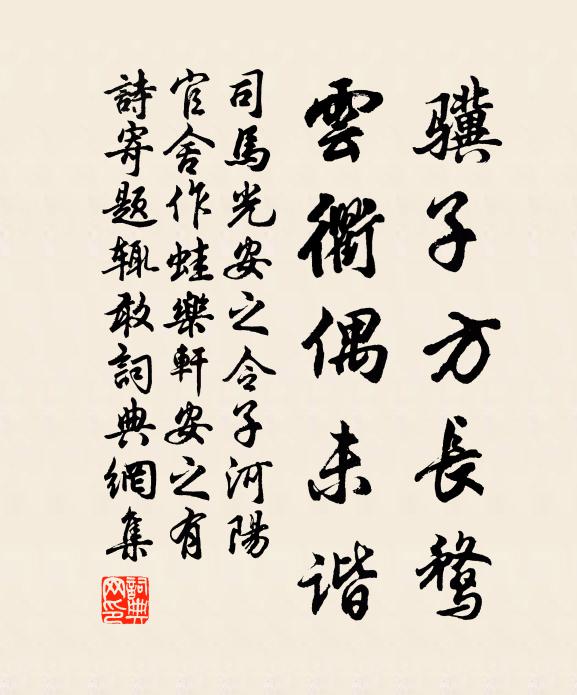 骥子方長騖
雲衢偶未谐
司馬光安之令子河陽
官舍作蛙樂軒安之有
詩寄題辄敢詞典網集